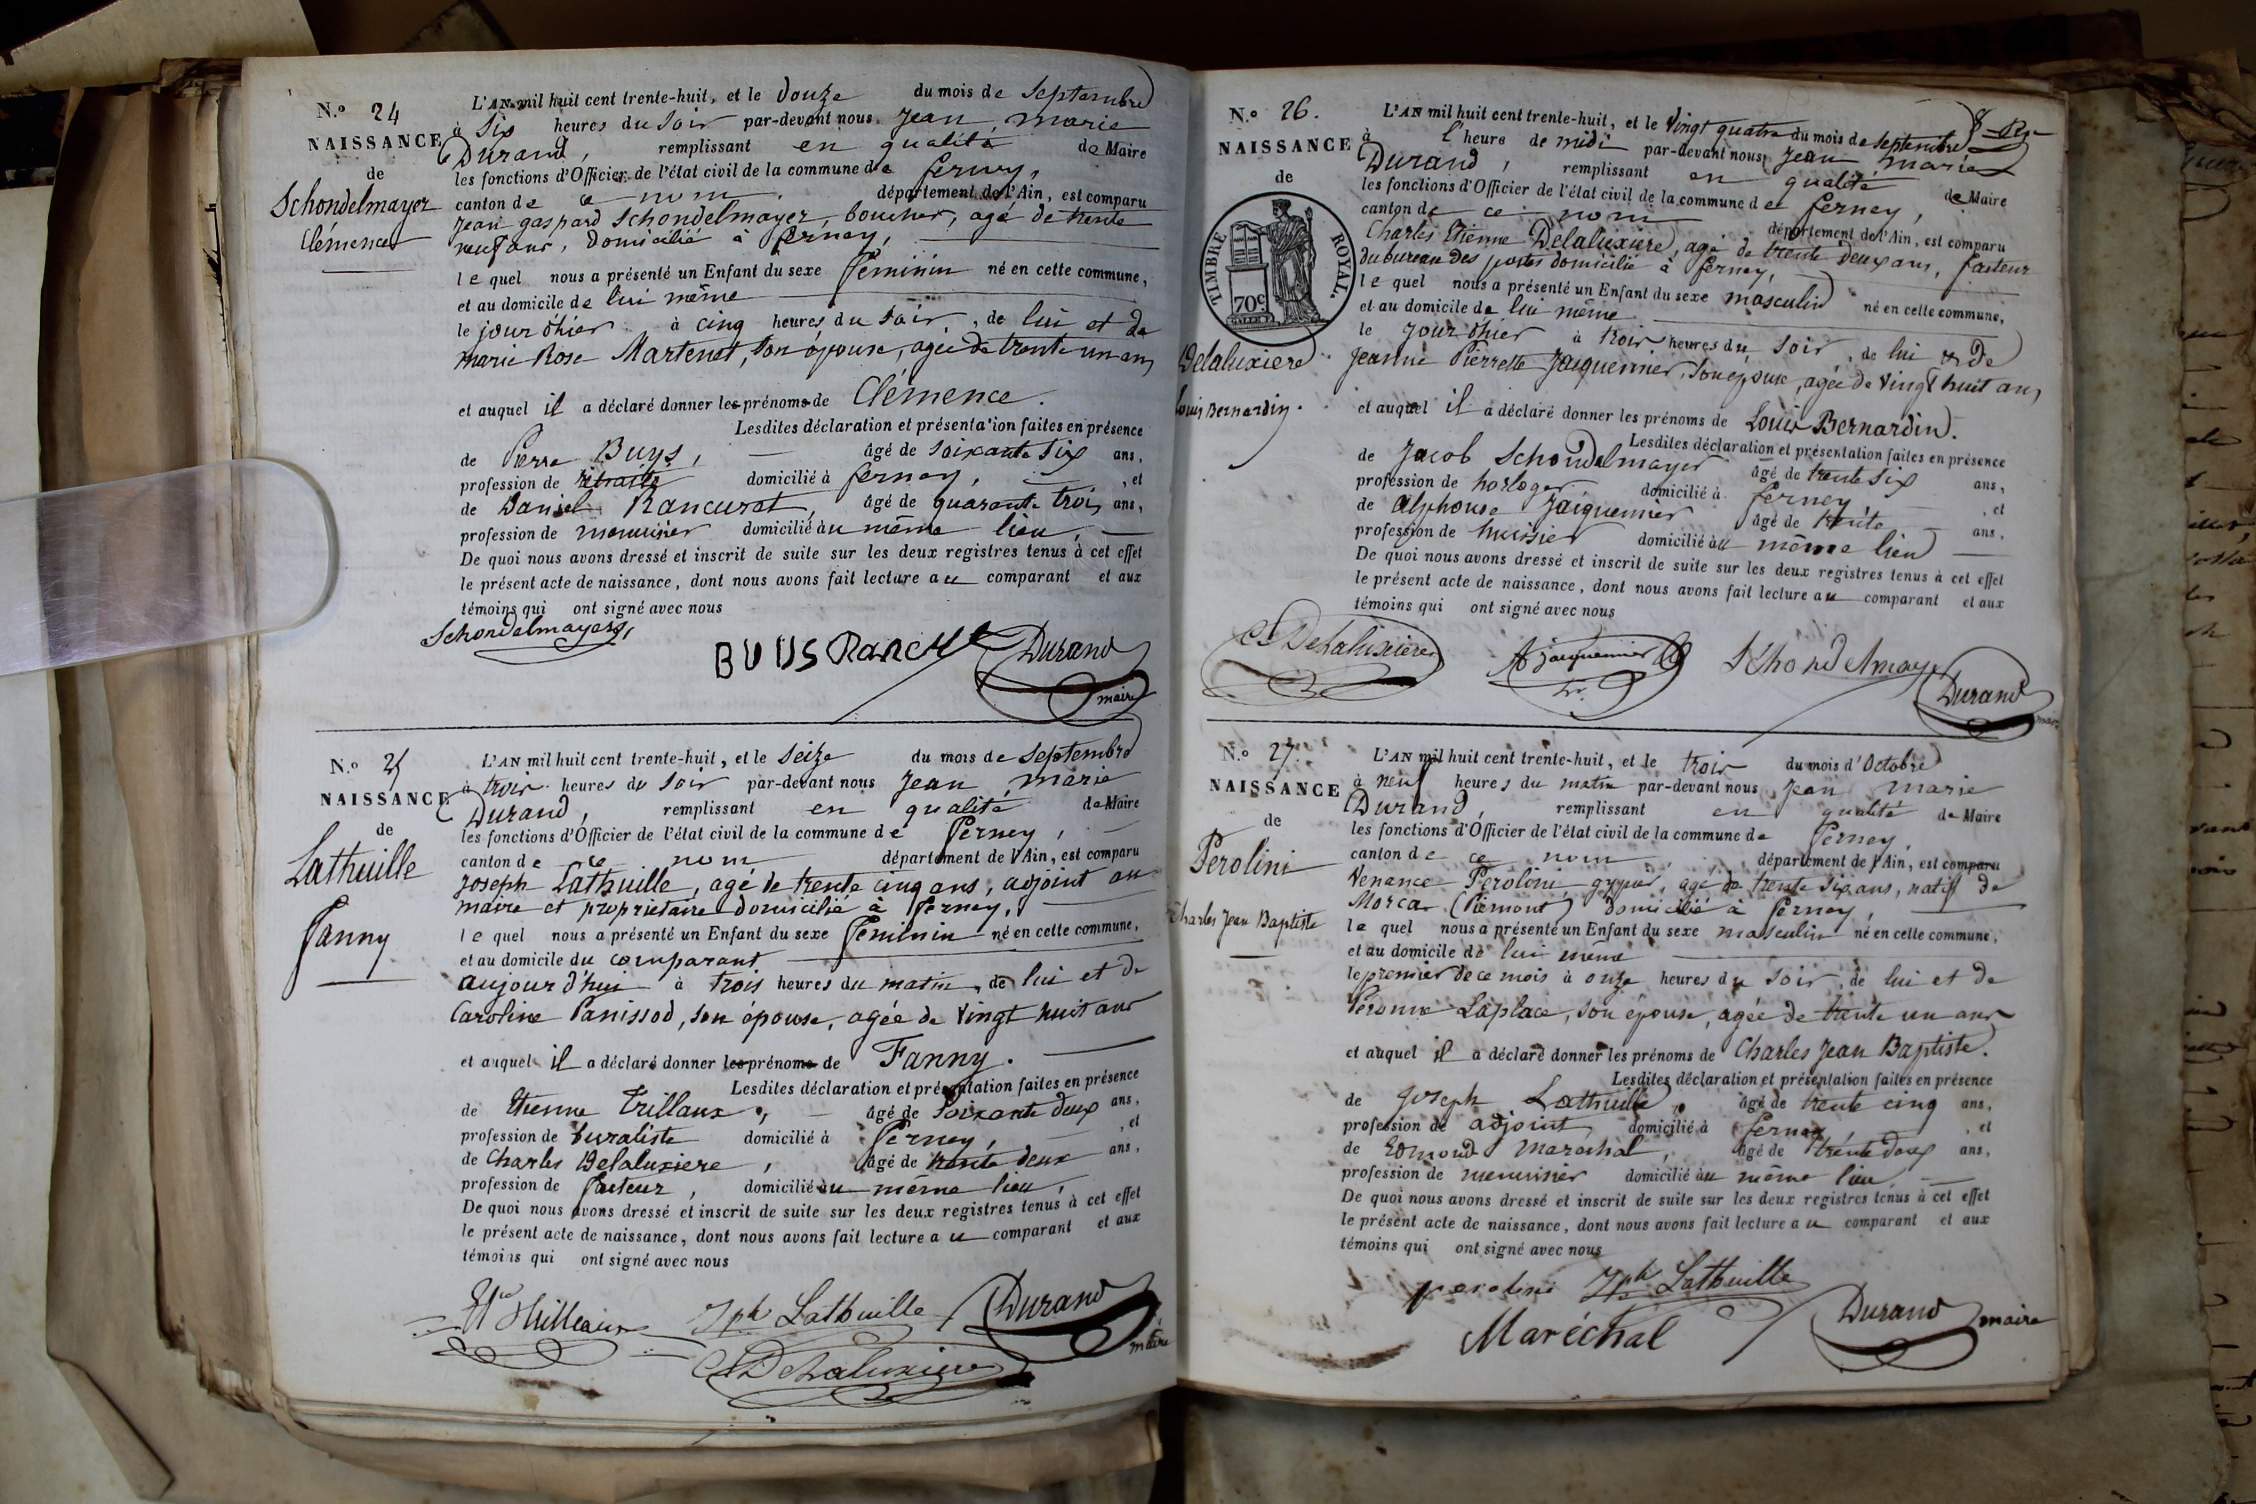 N.º 24
NAISSANCE
de
Schondelmayer
Clémence
L'AN mil huit cent trente-huit, et le douze du mois de septembre
à six heures du soir par-devant nous Jean Marie
Durand, remplissant en qualité de Maire
les fonctions d'Officier de l'état civil de la commune de ferney,
canton de ce nom département de l'Ain, est comparu
Jean gaspard Schondelmayer, boucher, agé de trente
neuf ans, domicilié à ferney,
lequel nous a présenté un Enfant du sexe féminin né en cette commune,
et au domicile de lui même
le jour d'hier à cinq heures du soir, de lui et de
marie Rose Martenet, son épouse, agée de trente un ans
et auquel il a déclaré donner les prénoms de Clémence.
Lesdites déclaration et présentation faites en présence
de Pierre Buys, âgé de soixante six ans,
profession de retraité domicilié à ferney, , et
de Daniel Rancurat, âgé de quarante trois ans,
profession de menuisier domicilié au même lieu,
De quoi nous avons dressé et inscrit de suite sur les deux registres tenus à cet effet
le présent acte de naissance, dont nous avons fait lecture au comparant et aux
témoins qui ont signé avec nous
Schondelmayer
BUUS Durand
maire
N.º 25
NAISSANCE
de
Lathuille
Fanny
L'AN mil huit cent trente-huit, et le seize du mois de septembre
à trois heures du soir par-devant nous Jean Marie
Durand, remplissant en qualité de Maire
les fonctions d'Officier de l'état civil de la commune de Ferney,
canton de ce nom département de l'Ain, est comparu
Joseph Lathuille, agé de trente cinq ans, adjoint au
maire et propriétaire domicilié à Ferney,
lequel nous a présenté un Enfant du sexe féminin né en cette commune,
et au domicile du comparant
aujourd'hui à trois heures du matin, de lui et de
Caroline Panissod, son épouse, agée de vingt huit ans
et auquel il a déclaré donner les prénoms de Fanny.
Lesdites déclaration et présentation faites en présence
de Etienne Trillaux, âgé de soixante deux ans,
profession de buraliste domicilié à Ferney, , et
de Charles Delaluxiere, âgé de trente deux ans,
profession de facteur, domicilié au même lieu,
De quoi nous avons dressé et inscrit de suite sur les deux registres tenus à cet effet
le présent acte de naissance, dont nous avons fait lecture au comparant et aux
témoins qui ont signé avec nous
Jph Lathuille Durand
maire
Delaluxiere
N.º 26.
NAISSANCE
de
TIMBRE ROYAL.
70c
Delaluxiere
Louis Bernardin.
L'AN mil huit cent trente-huit, et le vingt quatre du mois de septembre
à l'heure de midi par-devant nous Jean Marie
Durand, remplissant en qualité de Maire
les fonctions d'Officier de l'état civil de la commune de ferney,
canton de ce nom département de l'Ain, est comparu
Charles Etienne Delaluxiere, agé de trente deux ans, facteur
du bureau des postes domicilié à ferney,
lequel nous a présenté un Enfant du sexe masculin né en cette commune,
et au domicile de lui même
le jour d'hier à trois heures du soir, de lui & de
Jeanne Pierrette Jacquemier, son epouse, agée de vingt huit ans
et auquel il a déclaré donner les prénoms de Louis Bernardin.
Lesdites déclaration et présentation faites en présence
de Jacob Schondelmayer âgé de trente six ans,
profession de horloger domicilié à ferney , et
de Alphonse Jacquemier âgé de trente ans,
profession de huissier domicilié au même lieu
De quoi nous avons dressé et inscrit de suite sur les deux registres tenus à cet effet
le présent acte de naissance, dont nous avons fait lecture au comparant et aux
témoins qui ont signé avec nous
Delaluxiere Jacquemier Schondelmayer
Durand
maire
N.º 27.
NAISSANCE
de
Perolini
Charles Jean Baptiste
L'AN mil huit cent trente-huit, et le trois du mois d'Octobre
à neuf heures du matin par-devant nous Jean Marie
Durand, remplissant en qualité de Maire
les fonctions d'Officier de l'état civil de la commune de Ferney,
canton de ce nom, département de l'Ain, est comparu
Venance Perolini, gypier, agé de trente six ans, natif de
Morca (Piémont) domicilié à ferney,
lequel nous a présenté un Enfant du sexe masculin né en cette commune,
et au domicile de lui même
le premier de ce mois à onze heures du soir, de lui et de
Péronne Laplace, son épouse, agée de trente un ans
et auquel il a déclaré donner les prénoms de Charles Jean Baptiste.
Lesdites déclaration et présentation faites en présence
de Joseph Lathuille, âgé de trente cinq ans,
profession de adjoint domicilié à ferney , et
de Edmond Maréchal, âgé de trente deux ans,
profession de menuisier domicilié au même lieu,
De quoi nous avons dressé et inscrit de suite sur les deux registres tenus à cet effet
le présent acte de naissance, dont nous avons fait lecture au comparant et aux
témoins qui ont signé avec nous
perolini Jph Lathuille
Maréchal Durand maire